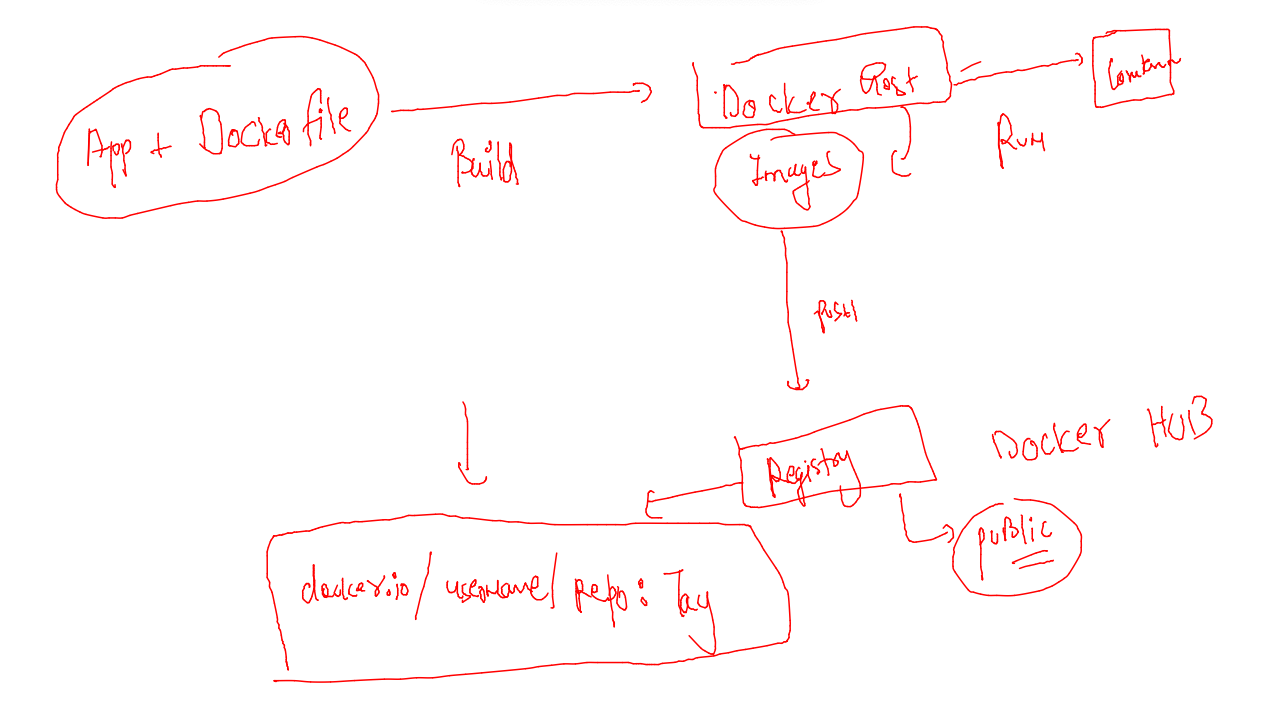 App + Dockerfile
Build
Docker Host
Images
Run
Container
push
Registry
Docker HUB
public
docker.io/username/Repo:Tag